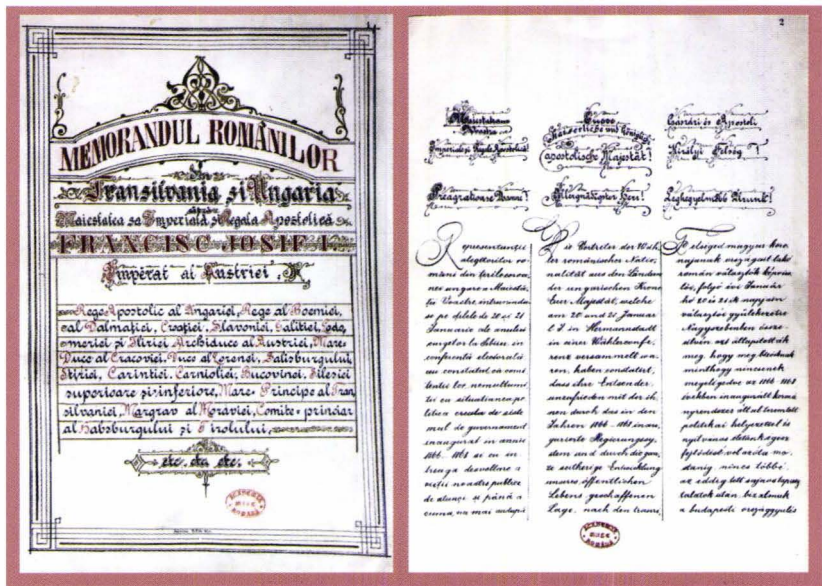 MEMORANDUL ROMÂNILOR
din
Transilvania și Ungaria
către
Maiestatea sa Imperială și Regală Apostolică
FRANCISC IOSIF I
Împĕrat al Austriei
Rege Apostolic al Ungariei, Rege al Boemiei,
al Dalmației, Croației, Slavoniei, Galiției, Lodo-
meriei și Iliriei Archiduce al Austriei, Mare-
Duce al Cracoviei, Duce al Lorenei, Salisburgului,
Stiriei, Carintiei, Carnioliei, Bucovinei, Silesiei
superioare și inferioare, Mare-Principe al Tran-
silvaniei, Margrav al Moraviei, Comite-princiar
al Habsburgului și Tirolului,
etc. etc. etc.
ACADEMIA
ROMÂNĂ
2
Maiestatea
Voastră
Imperială și Regală Apostolică!
Preagrațioase Doamne!
Representanții
alegĕtorilor ro-
mâni din
pe dilele de 20 și 21
Ianuarie ale anului
curgĕtor la Sibiu, în
conferență electorală
au constatat că
cu situațiunea po-
litică creată de siste-
mul de guvernament
inaugurat în anii
1866-1868 și cu în-
treaga desvoltare a
vieții noastre publice
de atunci și până a-
cuma, nu mai
Euere
Kaiserliche und Königliche
apostolische Majestät!
Allergnädigster Herr!
Die Vertreter der Wäh-
ler romänischer Natio-
nalität aus den Ländern
der ungarischen Krone
Euer Majestät, welche
am 20 und 21 Januar
l. J. in Hermannstadt
in einer Wählerconfe-
renz versammelt wa-
ren, haben constatirt,
dass ihre Entsender
unzufrieden mit der ih-
nen durch das in den
Jahren 1866-1868 inau-
gurirte Regierungssy-
stem und durch die gan-
ze seitherige Entwicklung
unseres öffentlichen
Lebens geschaffenen
Lage, nach den
Császári és Apostoli
Királyi Felség!
Legkegyelmesebb Urunk!
Felséged magyar koro-
nájának országait lakó
román választók képvise-
lői, folyó évi Január
hó 20 és 21-ik napján
választói gyülekezetre
Nagyszebenben össze-
ülvén azt állapították
meg, hogy megbizóik
minthogy nincsenek
megelégedve az 1866-1868
években inaugurált kormá-
nyrendszer által teremtett
politikai helyzettel és
nyilvános életünk egész
fejlődésével azóta mo-
stanig, nincs többé
az eddig tett sajnos tapasz-
talatok után, bizalmuk
a budapesti országgyülés
ACADEMIA
ROMÂNĂ